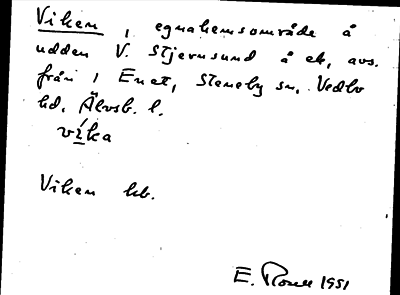 Viken, egnahemsområde å
udden V. Stjernsund å ek, avs.
från 1 Enet, Steneby sn, Vedbo
hd, Älvsb. l.
vi̱ka
Viken kb.
E. 1951